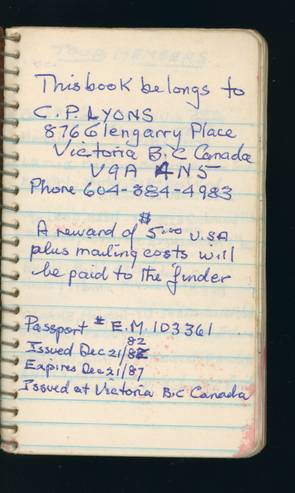 This book belongs to
C.P. LYONS
876 Glengarry Place
Victoria B.C Canada
V9A 4N5
Phone 604-384-4983
A reward of $5.00 U.S.A
plus mailing costs will
be paid to the finder
Passport # E.M 103361
Issued Dec 21/82
Expires Dec 21/87
Issued at Victoria B.C Canada